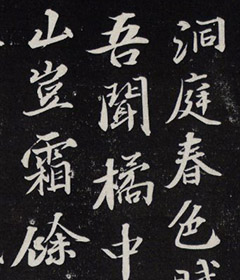 洞庭春色賦
吾聞橘中
山豈霜餘